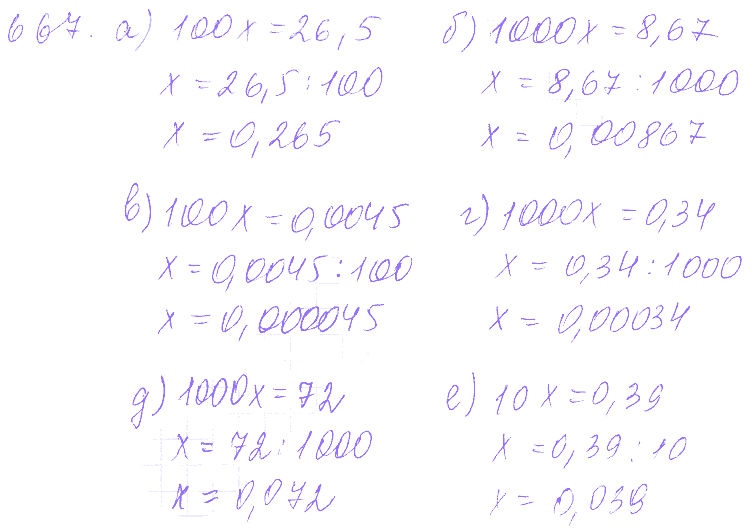 667. а) 100x = 26,5
x = 26,5 : 100
x = 0,265
б) 1000x = 8,67
x = 8,67 : 1000
x = 0,00867
в) 100x = 0,0045
x = 0,0045 : 100
x = 0,000045
г) 1000x = 0,34
x = 0,34 : 1000
x = 0,00034
д) 1000x = 72
x = 72 : 1000
x = 0,072
е) 10x = 0,39
x = 0,39 : 10
x = 0,039